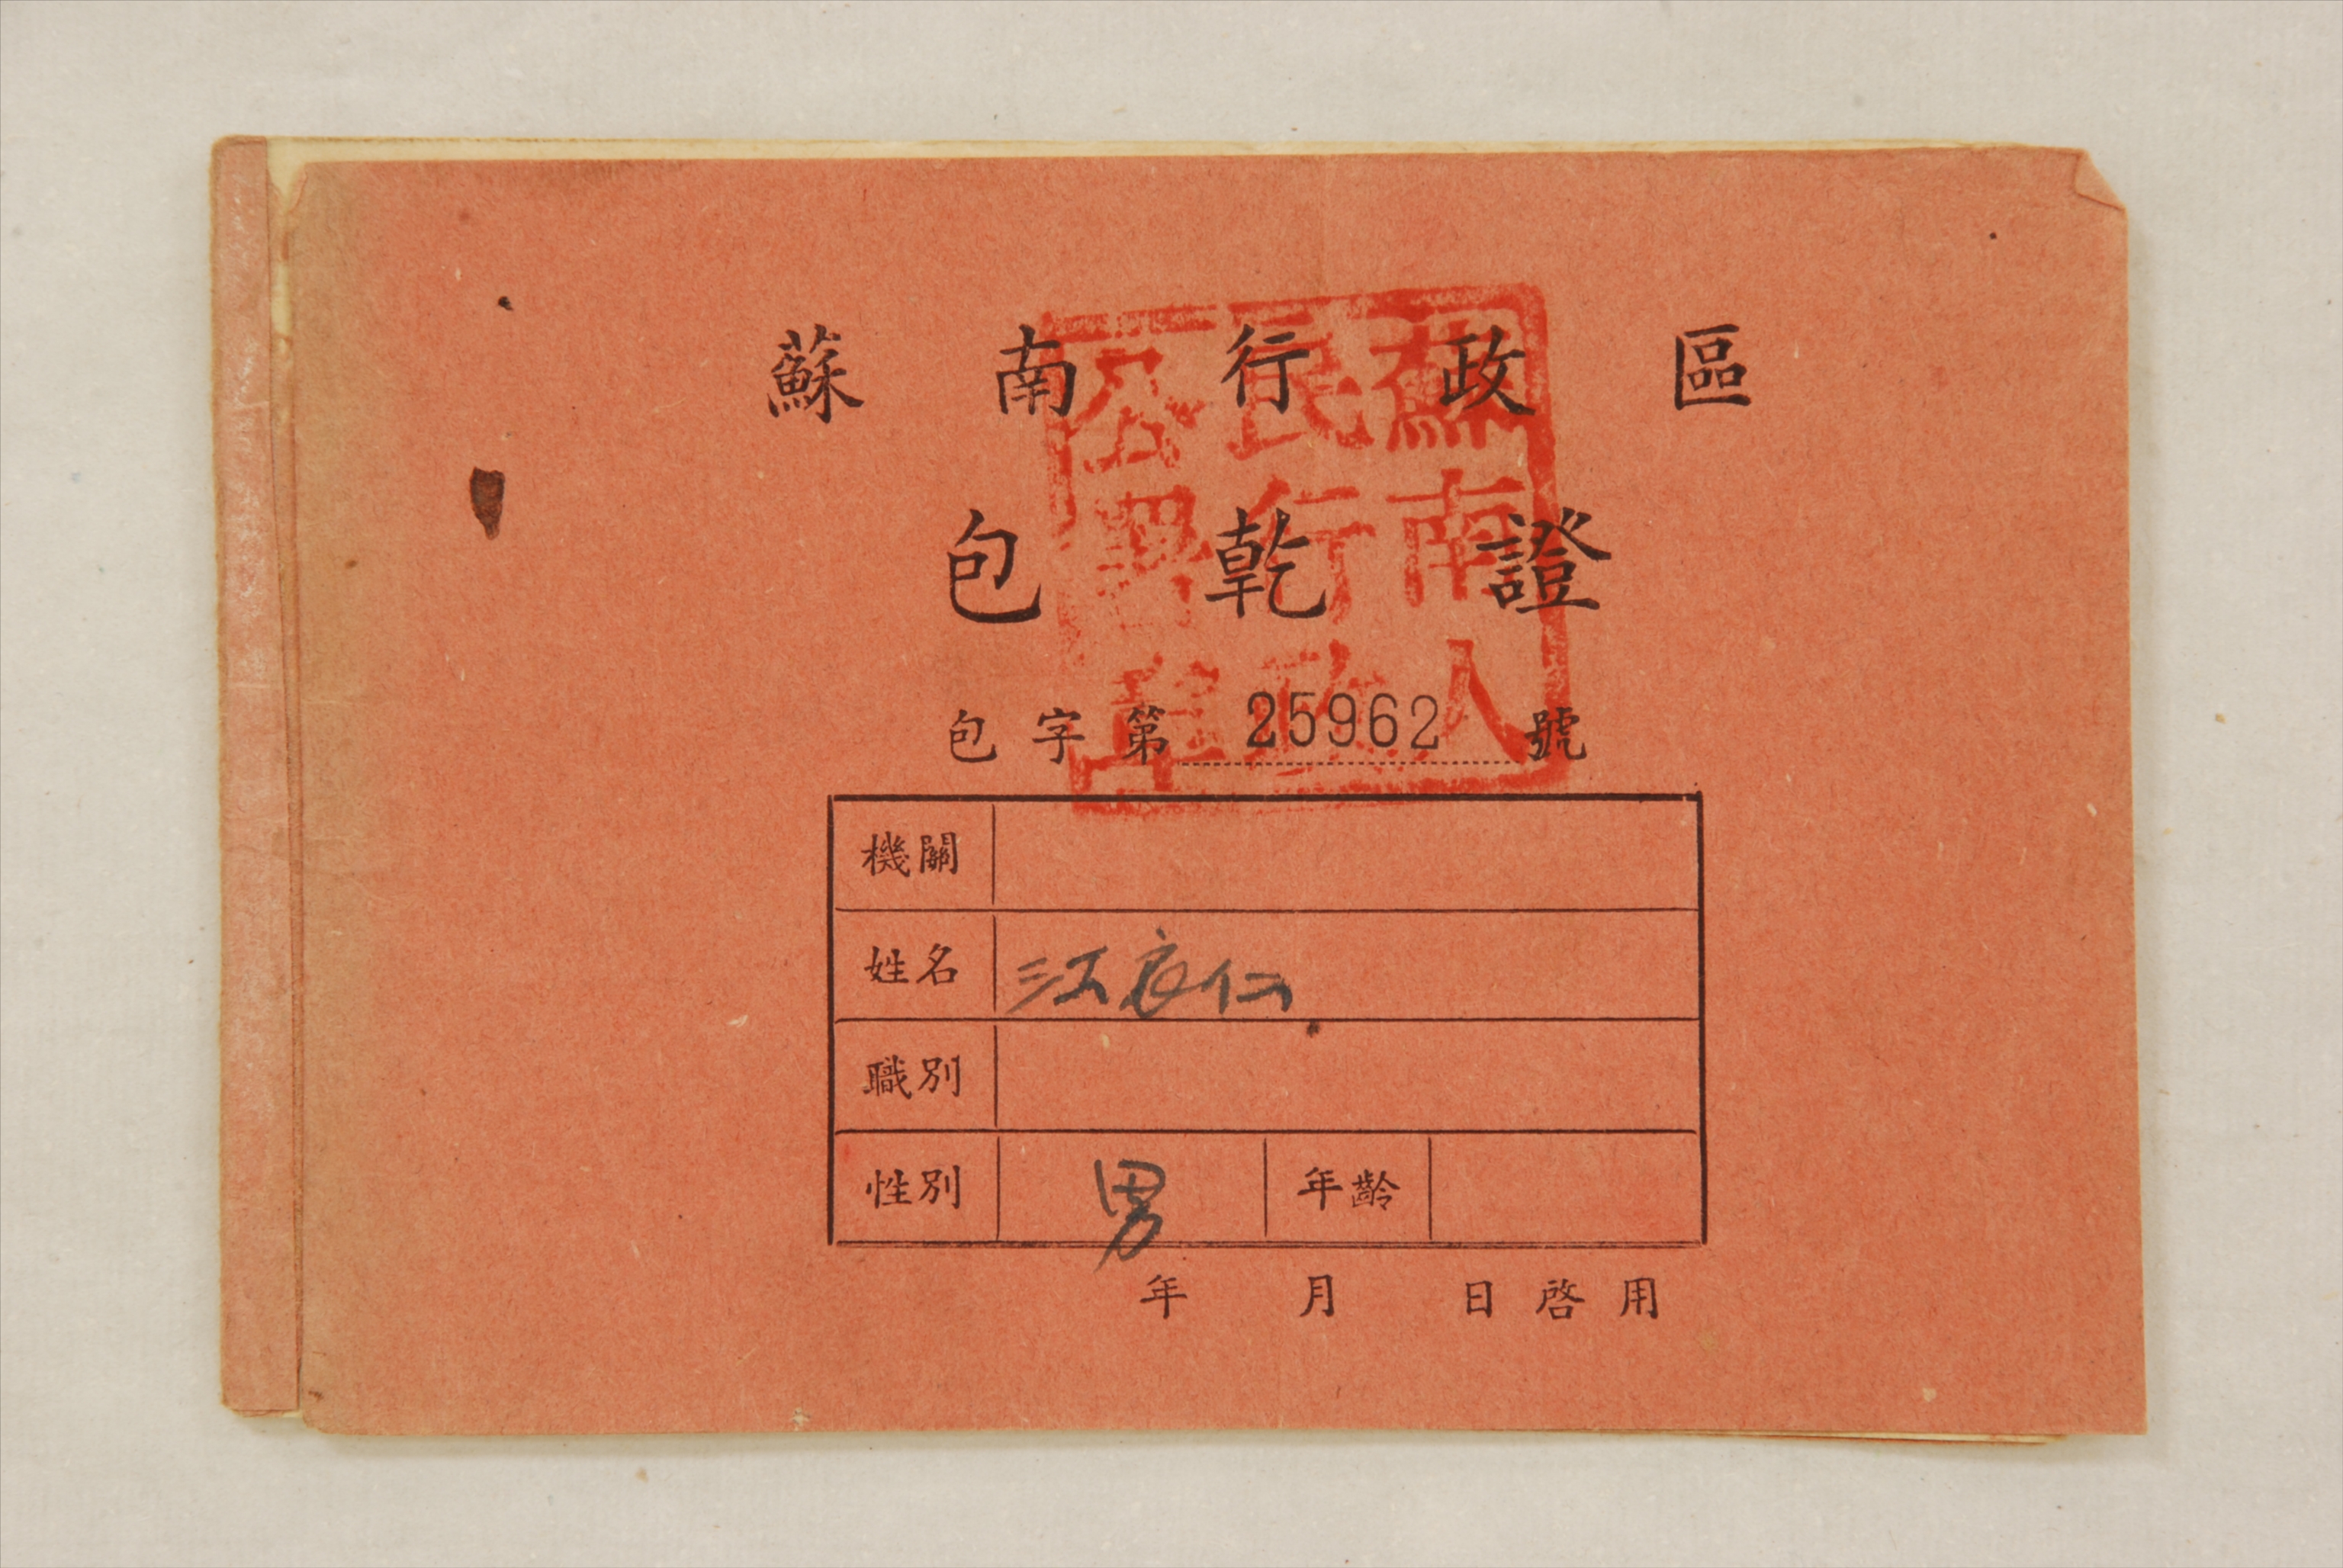 蘇南行政區
包乾證
包字第25962號
蘇南人民行政公署章
機關
姓名 江良仁
職別
性別 男 年齡
年 月 日啓用